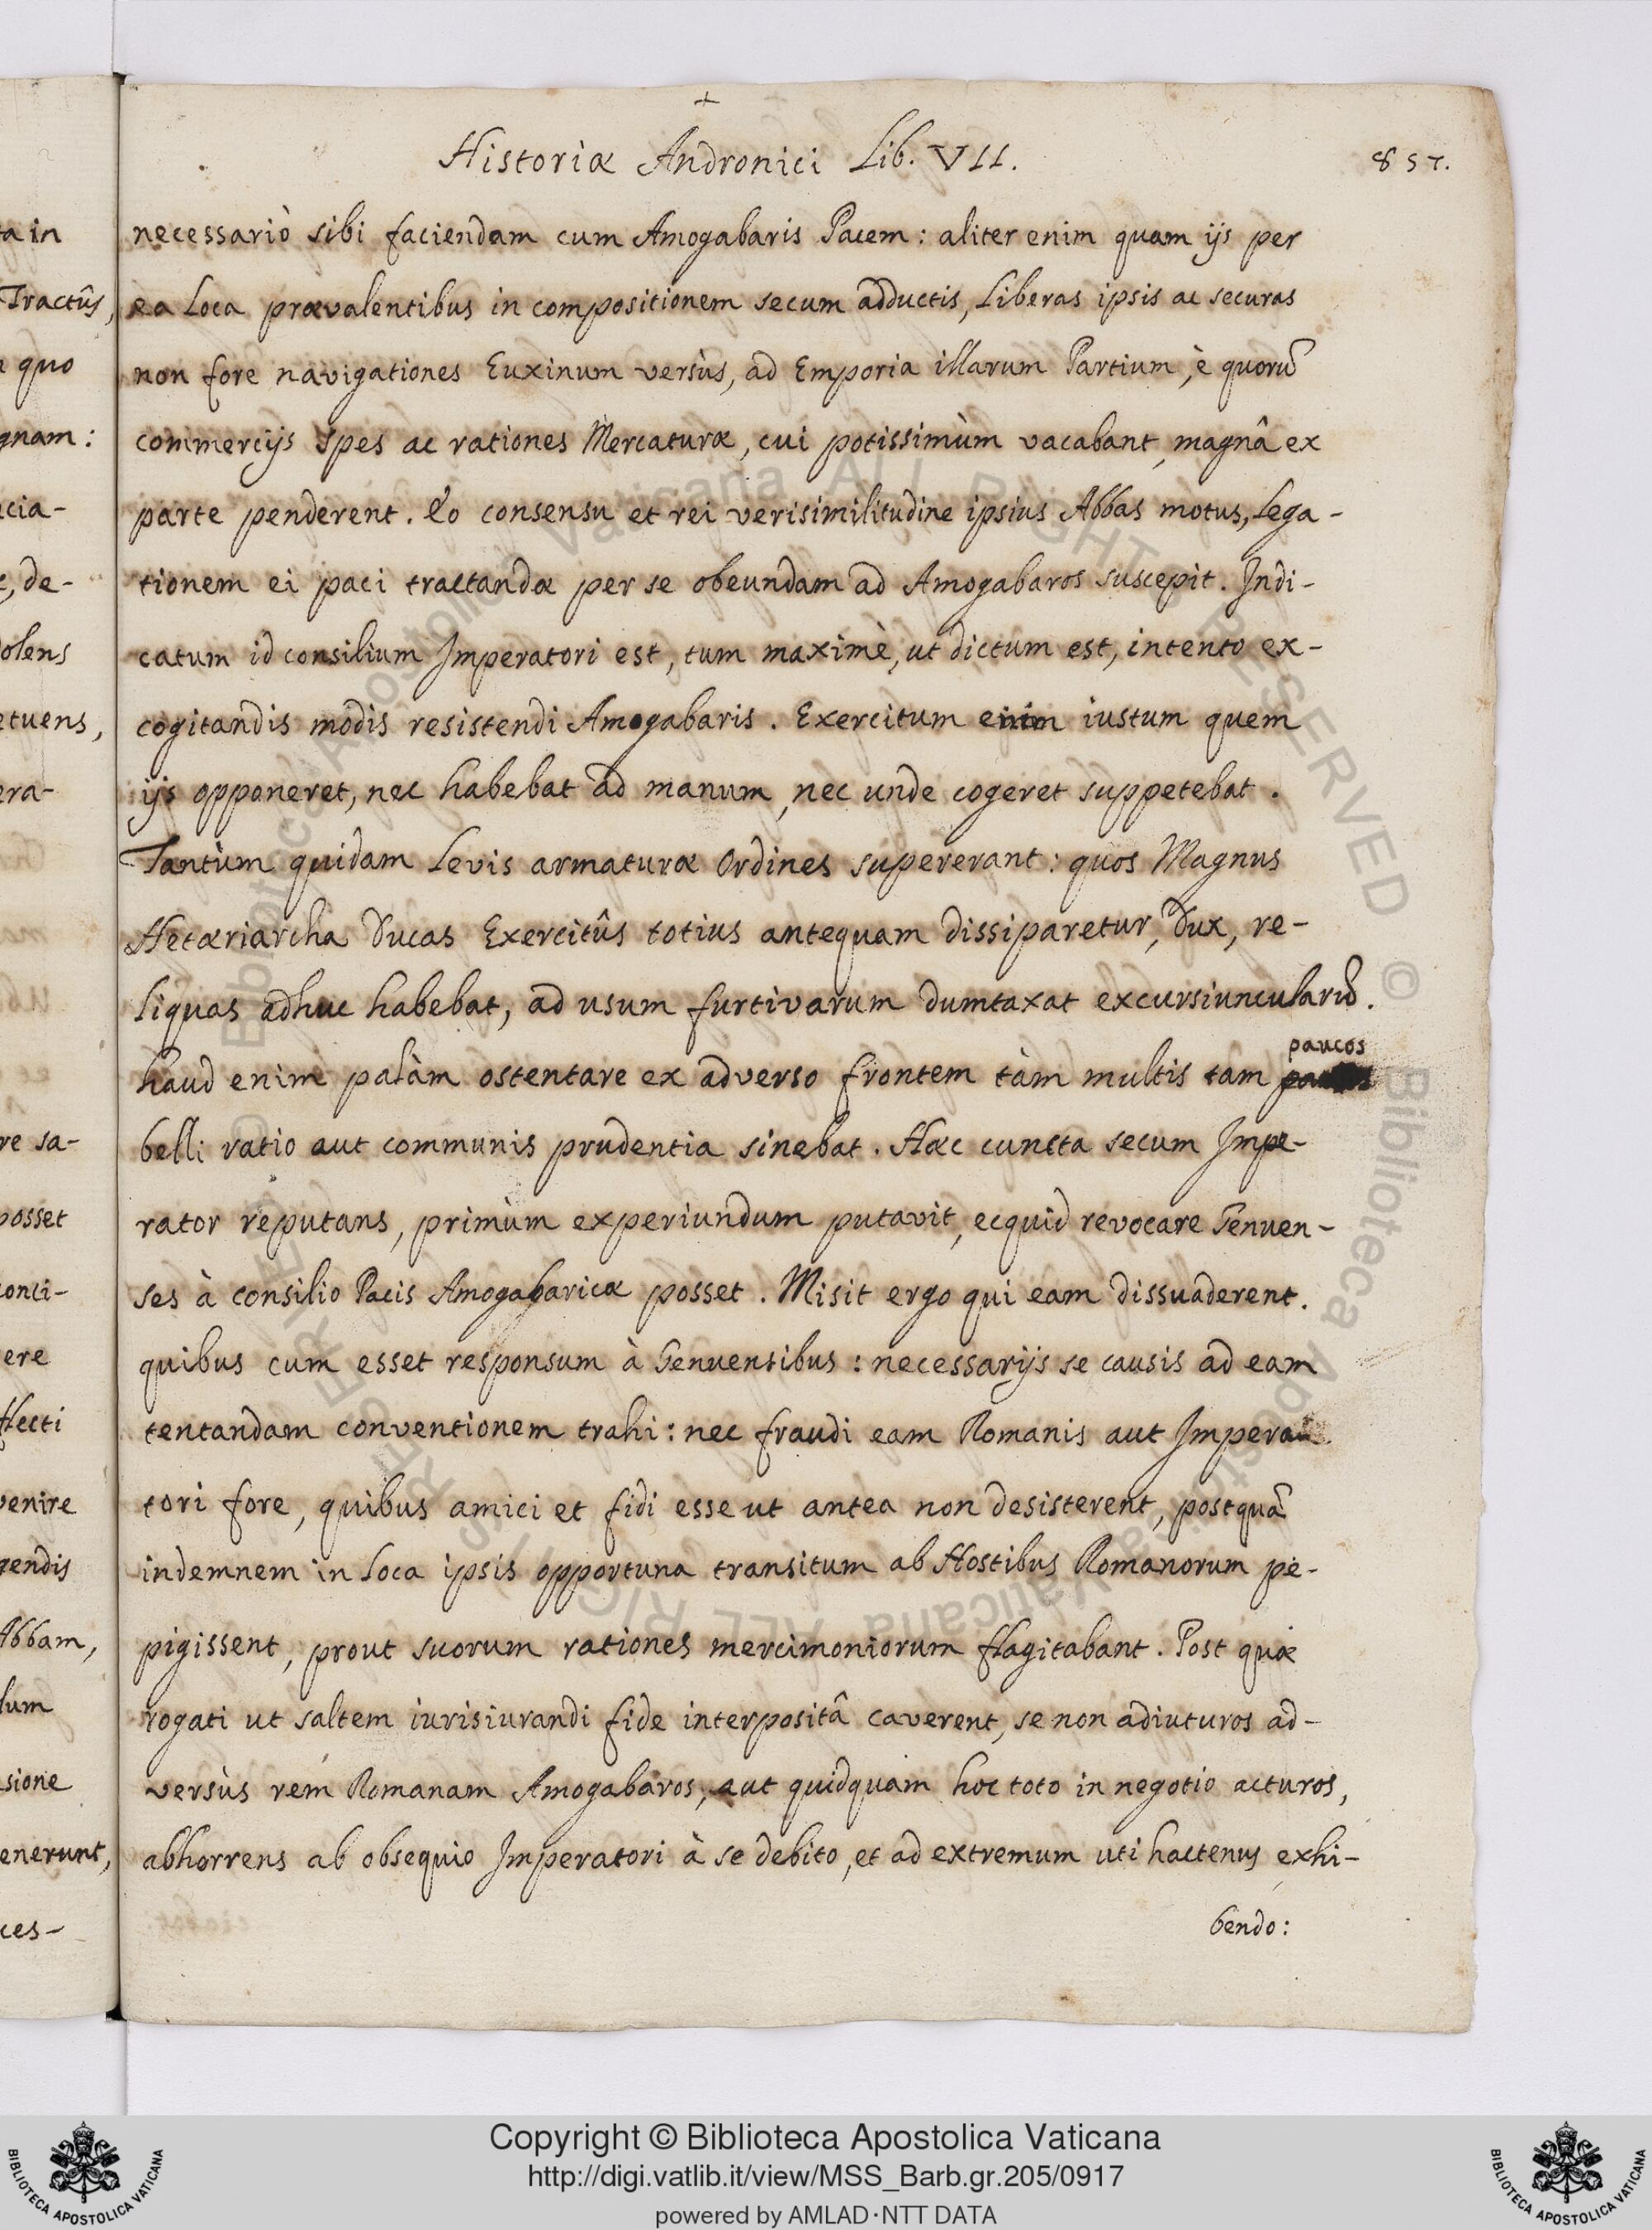 Historiæ Andronici Lib. VII.
857.
necessariò sibi faciendam cum Amogabaris Pacem: aliter enim quam ijs per
ea Loca prævalentibus in compositionem secum adductis, Liberas ipsis ac securas
non fore navigationes Euxinum versùs, ad Emporia illarum Partium, è quorũ
commercijs spes ac rationes Mercaturæ, cui potissimùm vacabant, magnâ ex
parte penderent. Eo consensu et rei verisimilitudine ipsius Abbas motus, Lega-
tionem ei paci tractandæ per se obeundam ad Amogabaros suscepit. Indi-
catum id consilium Imperatori est, tum maximè, ut dictum est, intento ex-
cogitandis modis resistendi Amogabaris. Exercitum enim iustum quem
ijs opponeret, nec habebat ad manum, nec unde cogeret suppetebat.
Tantùm quidam Levis armaturæ Ordines supererant: quos Magnus
Hetæriarcha Ducas Exercitûs totius antequam dissiparetur, Dux, re-
liquas adhuc habebat, ad usum furtivarum dumtaxat excursiuncularũ.
paucos
haud enim palàm ostentare ex adverso frontem tàm multis tam
belli ratio aut communis prudentia sinebat. Hæc cuncta secum Impe-
rator reputans, primùm experiundum putavit, ecquid revocare Genuen-
ses à consilio Pacis Amogabaricæ posset. Misit ergo qui eam dissuaderent.
quibus cum esset responsum à Genuensibus: necessarijs se causis ad eam
tentandam conventionem trahi: nec fraudi eam Romanis aut Impera
tori fore, quibus amici et fidi esse ut antea non desisterent, postquã
indemnem in Loca ipsis opportuna transitum ab Hostibus Romanorum pe-
pigissent, prout suorum rationes mercimoniorum flagitabant. Post quæ
rogati ut saltem iurisiurandi fide interpositâ caverent, se non adiuturos ad-
versùs rem Romanam Amogabaros, aut quidquam hoc toto in negotio acturos,
abhorrens ab obsequio Imperatori à se debito, et ad extremum uti hactenus exhi-
bendo:
ta in
Tractûs,
quo
gnam:
cia-
de-
olens
etuens,
era-
re sa-
posset
onci-
ere
flecti
venire
gendis
Abbam,
lum
sione
enerunt,
ces-
© Biblioteca Apostolica Vaticana ALL RIGHTS RESERVED
© Biblioteca Apostolica Vaticana ALL RIGHTS RESERVED
Copyright © Biblioteca Apostolica Vaticana
http://digi.vatlib.it/view/MSS_Barb.gr.205/0917
powered by AMLAD·NTT DATA
BIBLIOTECA APOSTOLICA VATICANA
BIBLIOTECA APOSTOLICA VATICANA